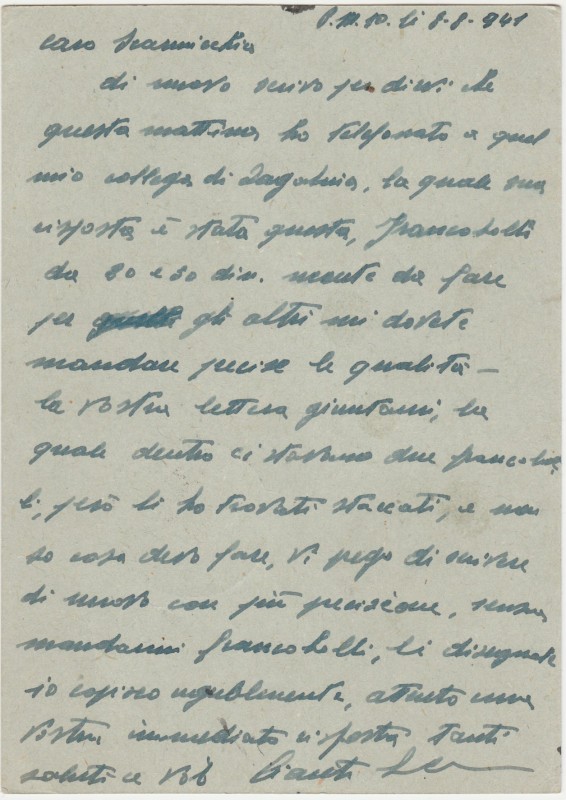 P.M. 10. li 8-8-941
caro
di nuovo scrivo per dirvi che
questa mattina ho telefonato a quel
mio collega di Zagabria, la quale sua
risposta è stata questa, francobolli
da 20 e 30 din. niente da fare
per gli altri mi dovete
mandare precise le qualità –
la vostra lettera giuntami, la
quale dentro ci stavano due francobol
li, però li ho trovati staccati, e non
so cosa devo fare, vi prego di scrivere
di nuovo con più precisione, senza
mandarmi francobolli, li disegnate
io capisco ugualmente, attento una
vostra immediato risposta tanti
saluti a voi